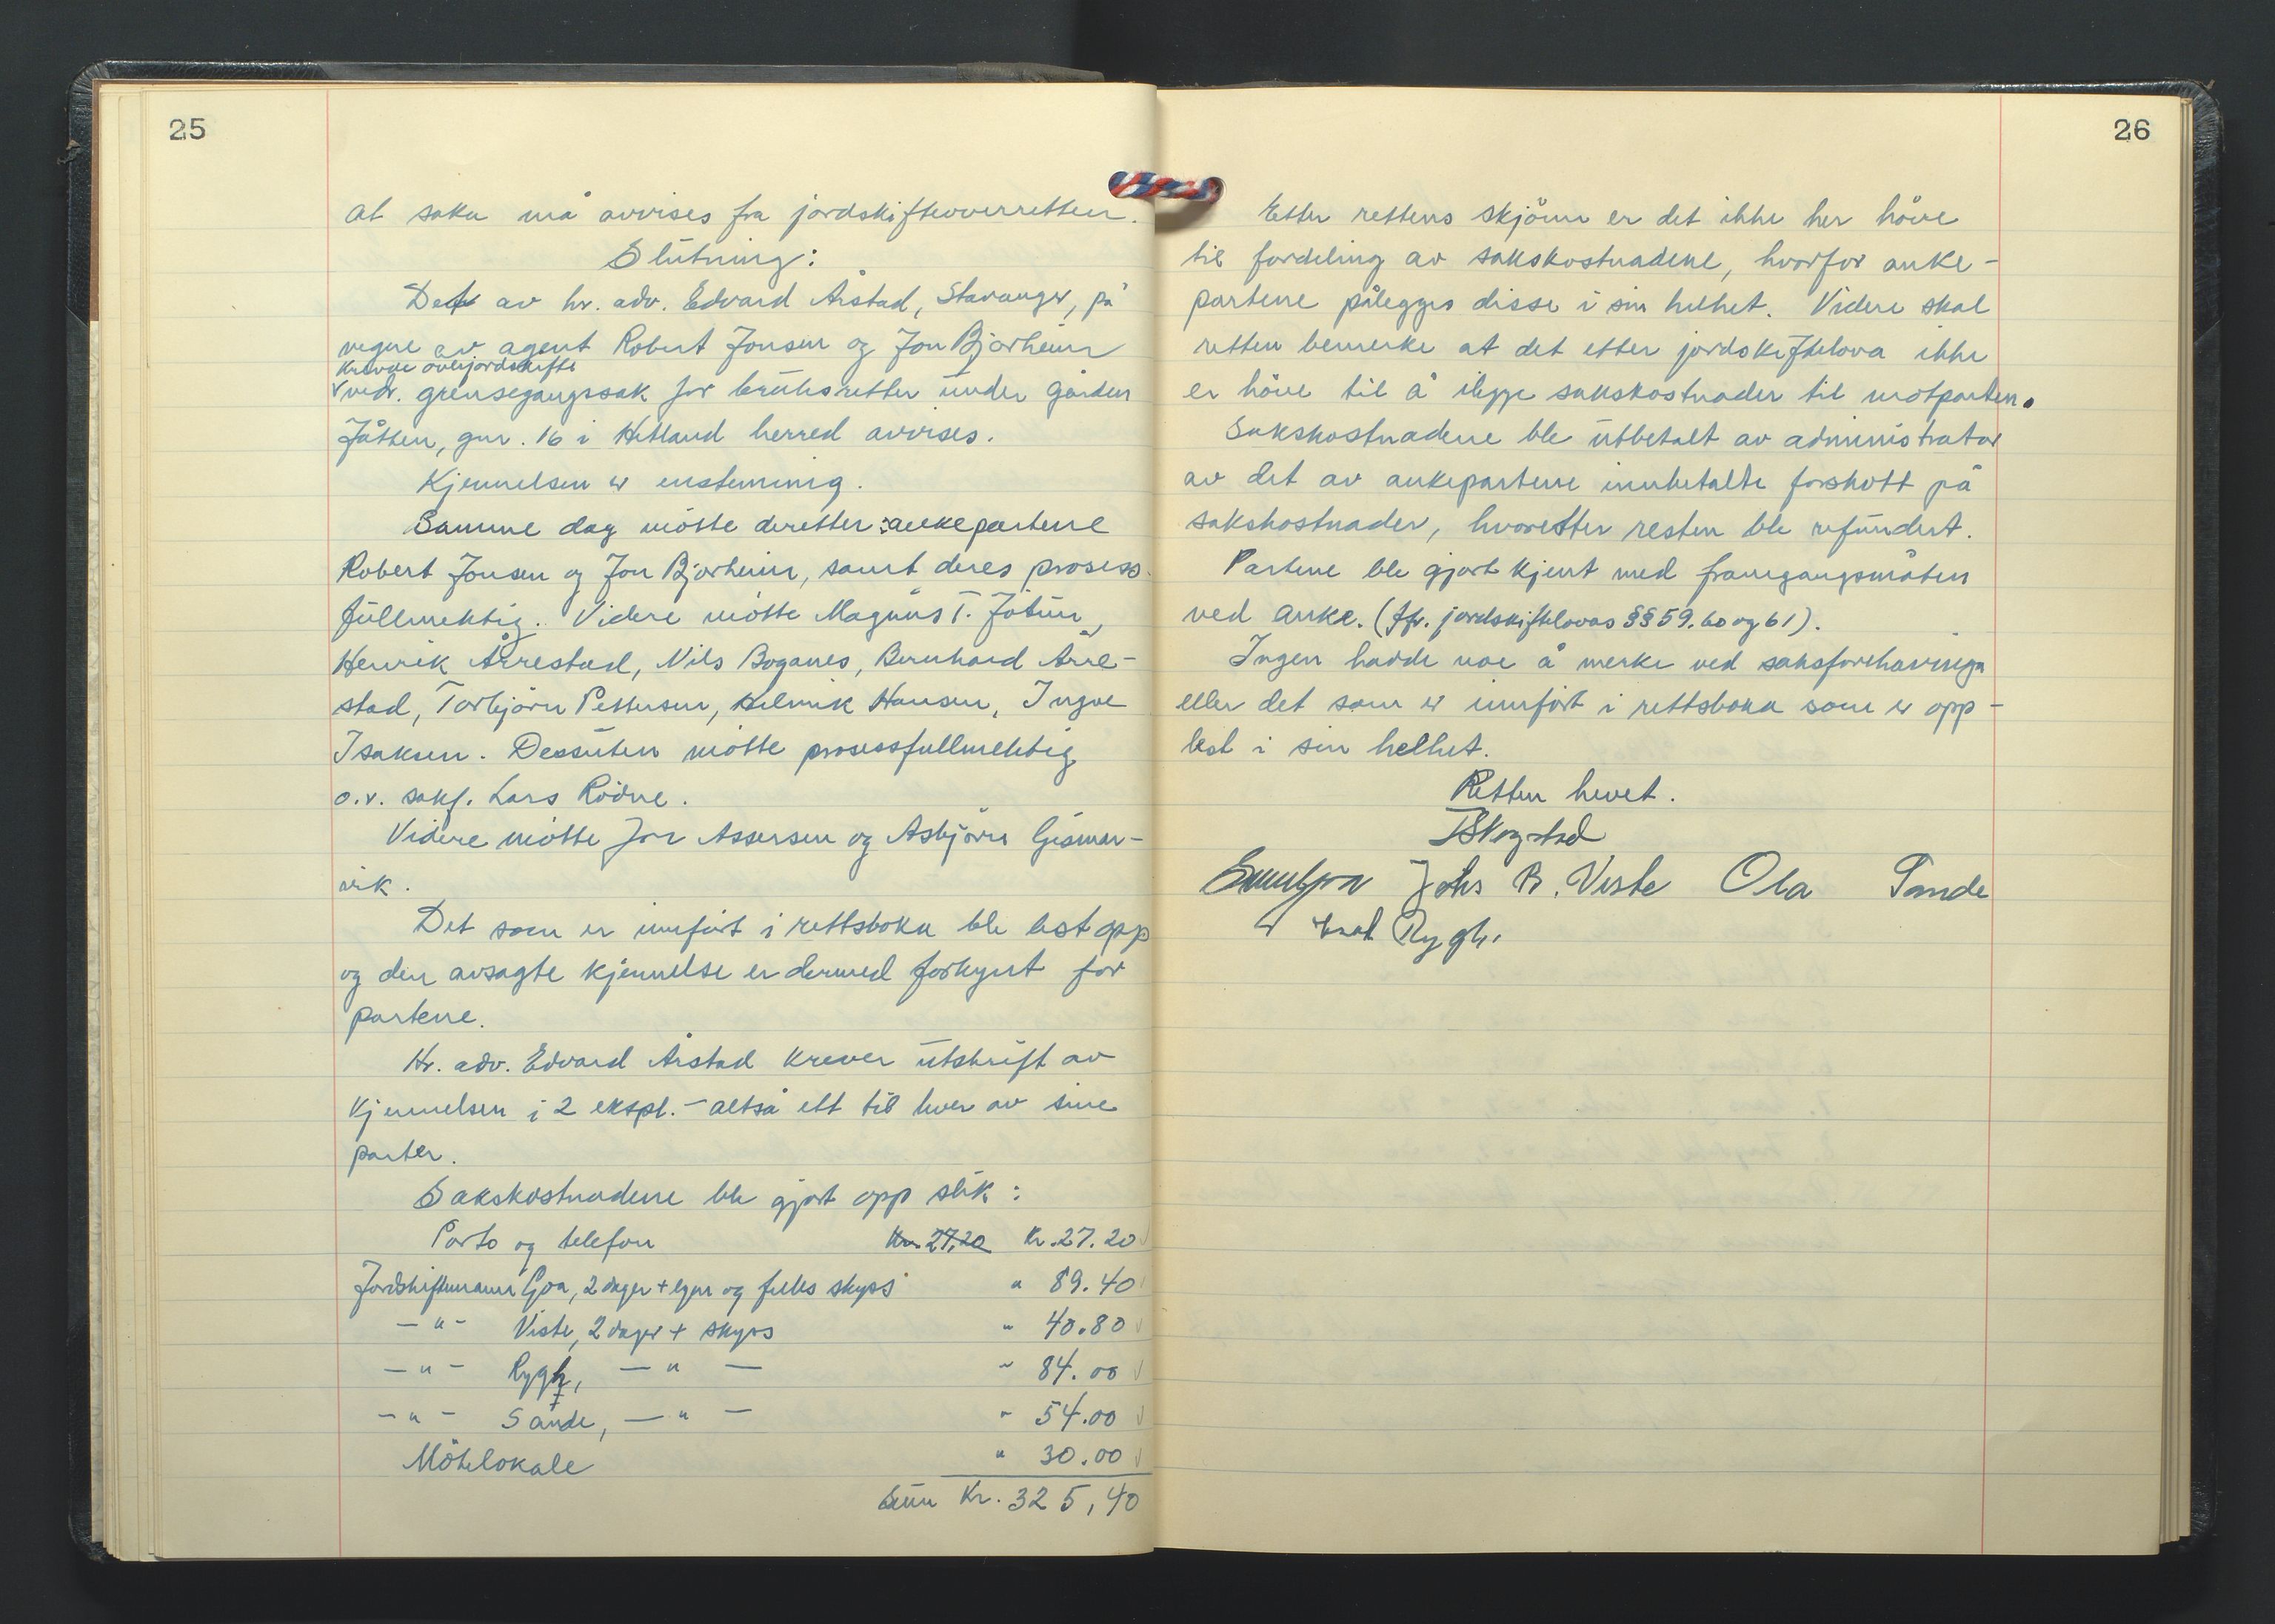 25
at saka må avvises fra jordskifteoverretten.
Slutning:
Det av hr. adv. Edvard Årstad, Stavanger, på
vegne av agent Robert Jonsen og Jon Bjorheim
krevde overjordskifte
vedr. grensegangssak for bruksretter under gården
Jåtten, gnr. 16 i Hetland herred avvises.
Kjennelsen er enstemmig.
Samme dag mötte deretter: ankepartene
Robert Jonsen og Jon Bjorheim, samt deres prosess-
fullmektig. Videre mötte Magnus T. Jåtun,
Henrik Årrestad, Nils Boganes, Bernhard Årre-
stad, Torbjörn Pettersen, Helmik Hansen, Ingve
Isaksen. Dessuten mötte prosessfullmektig
o.r. sakf. Lars Rödne.
Videre mötte Jon Assersen og Asbjörn Gismar-
vik.
Det som er innfört i rettsboka ble lest opp
og den avsagte kjennelse er dermed forkynt for
partene.
Hr. adv. Edvard Årstad krever utskrift av
kjennelsen i 2 ekspl. - altså ett til hver av sine
parter.
Sakskostnadene ble gjort opp slik:
Porto og telefon Kr. 27,20 Kr. 27.20
Jordskiftemann Goa, 2 dager + egen og felles skyss " 89.40
- " - Viste, 2 dager + skyss " 40.80
- " - Rygh, - " - " 84.00
- " - Sande, - " - " 54.00
Mötelokale " 30.00
Sum Kr. 325,40
26
Etter rettens skjönn er det ikke her höve
til fordeling av sakskostnadene, hvorfor anke-
partene pålegges disse i sin helhet. Videre skal
retten bemerke at det etter jordskiftelova ikke
er höve til å ilegge sakskostnader til motparten.
Sakskostnadene ble utbetalt av administrator
av det av ankepartene innbetalte forskott på
sakskostnader, hvoretter resten ble refundert.
Partene ble gjort kjent med framgangsmåten
ved anke. (Jfr. jordskiftelovas §§ 59. 60 og 61).
Ingen hadde noe å merke ved saksforehavinga
eller det som er innfört i rettsboka som er opp-
lest i sin helhet.
Retten hevet.
Skogstad
Johs B. Viste Ola Sande
Rygh.